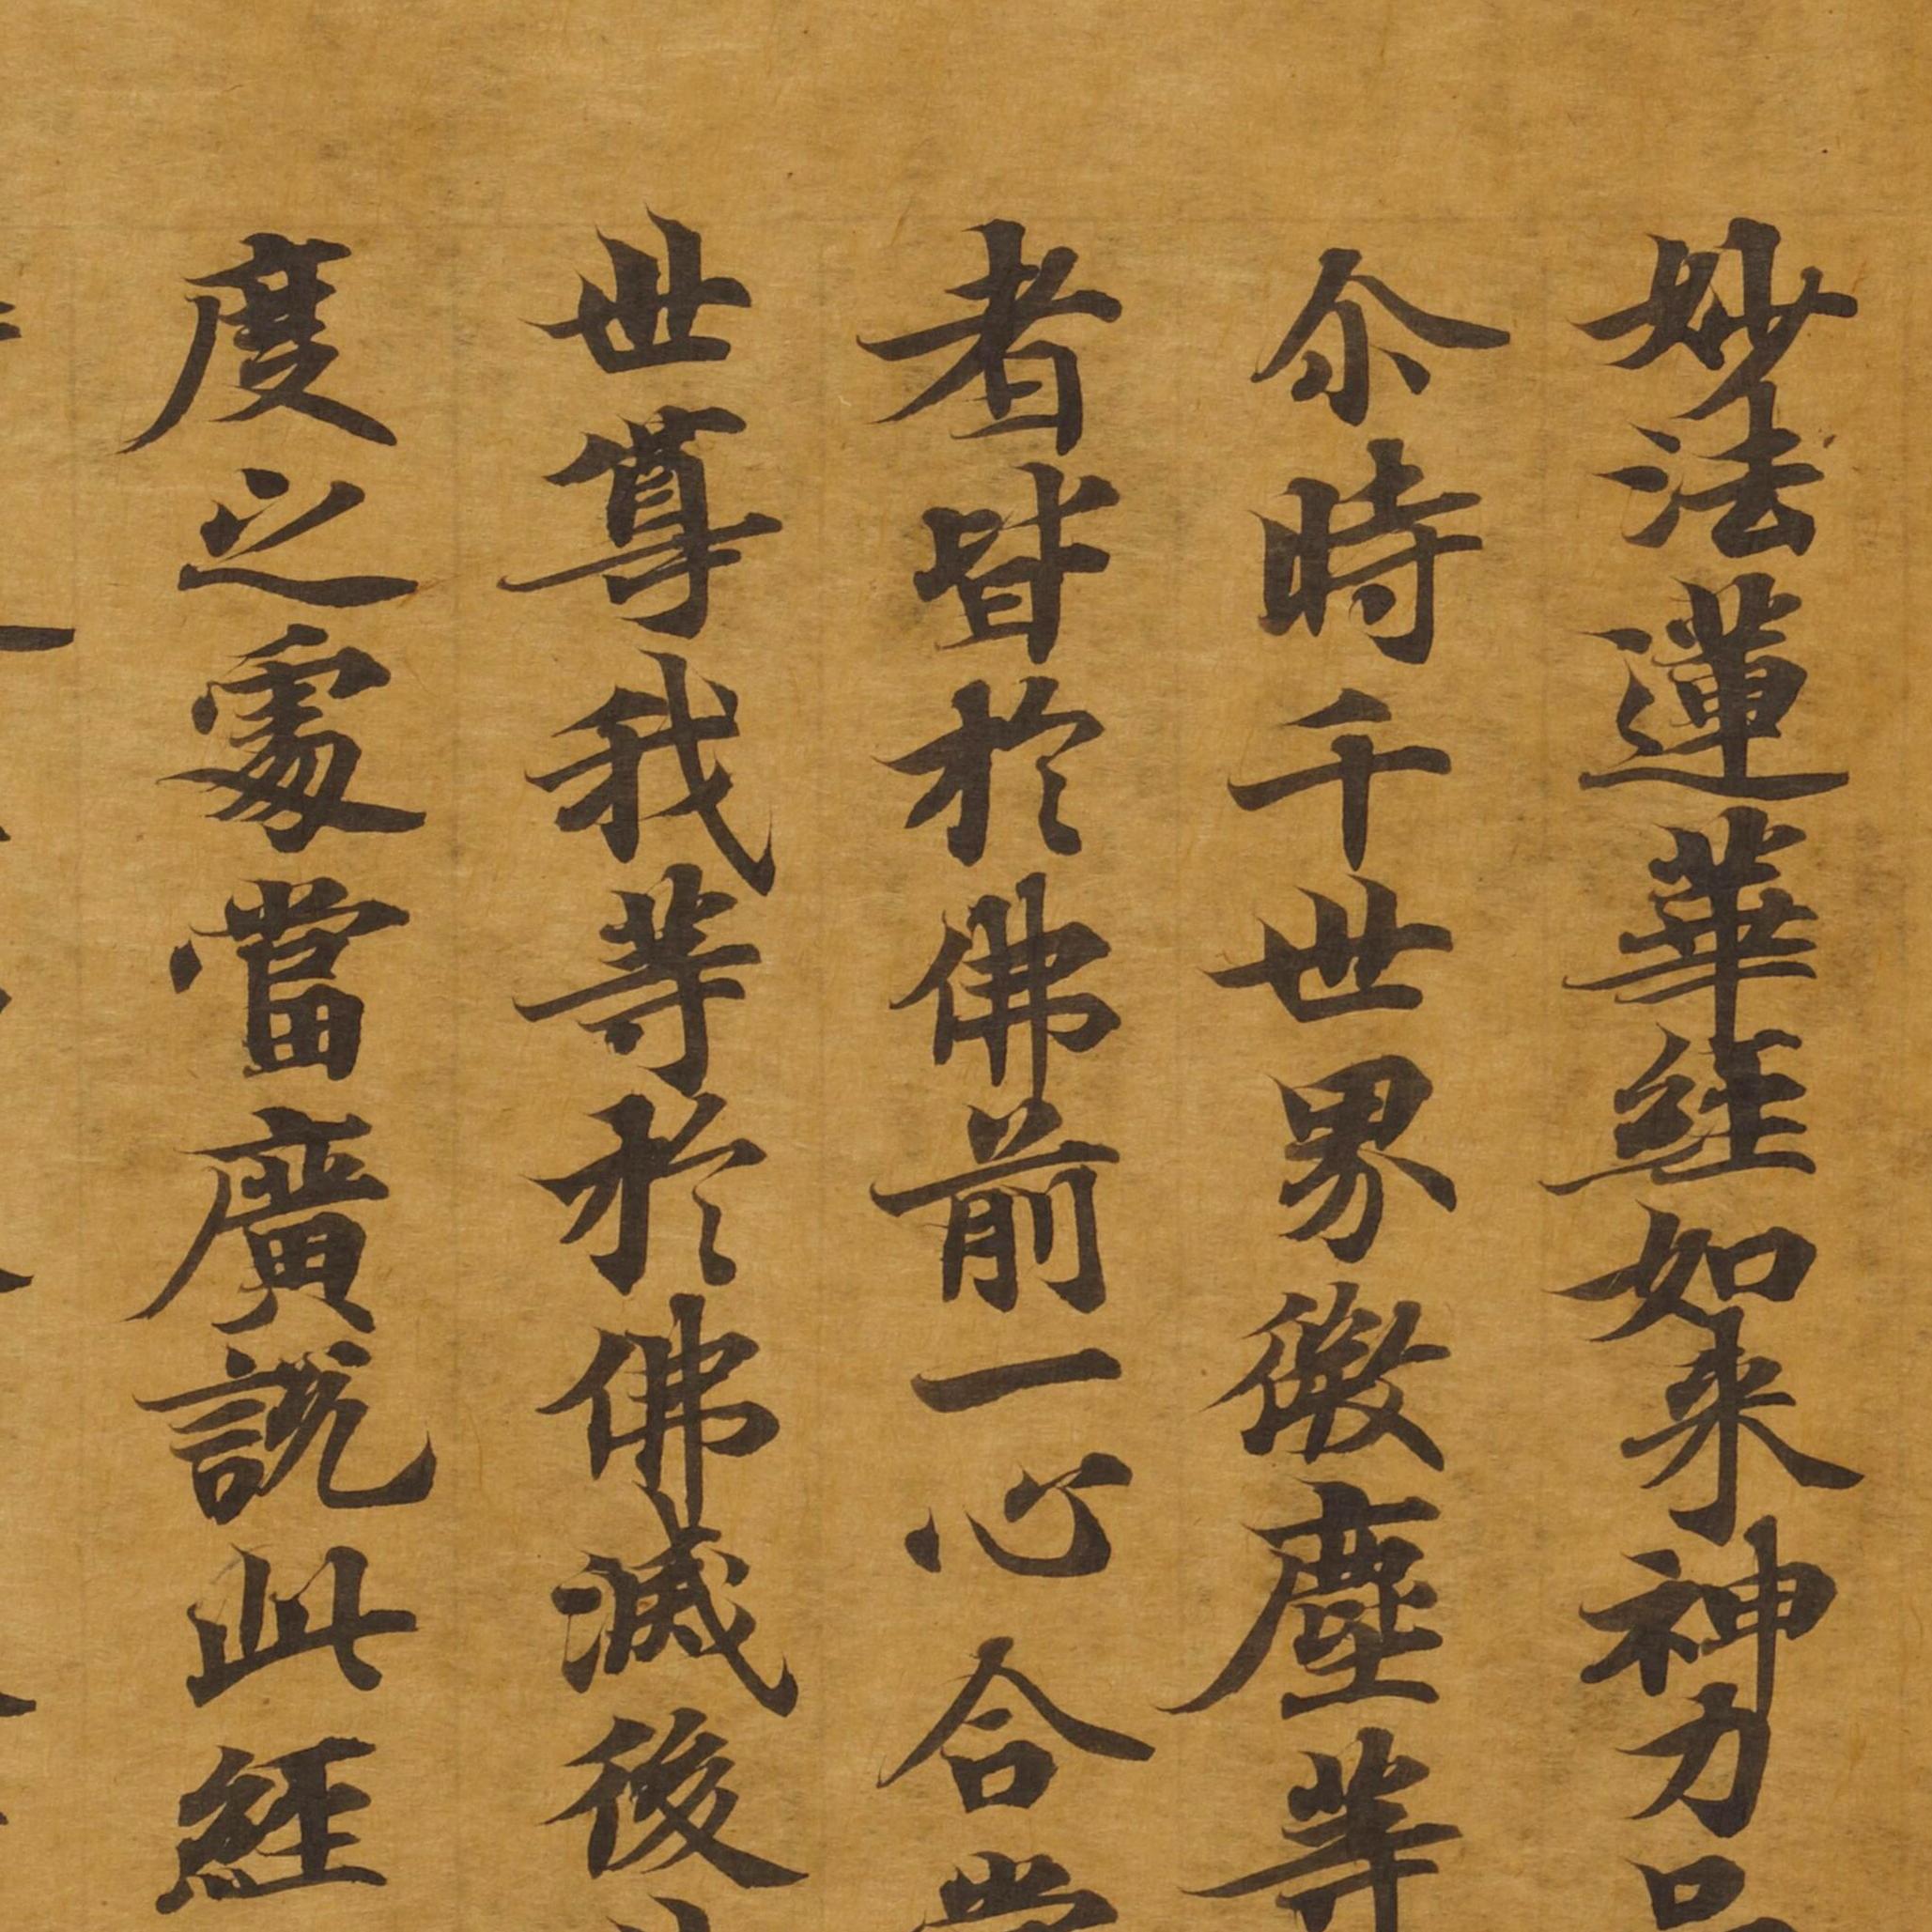 妙法蓮華經如来神力品
尒時千世界微塵等
者皆於佛前一心合掌
世尊我等於佛滅後
度之處當廣說此經